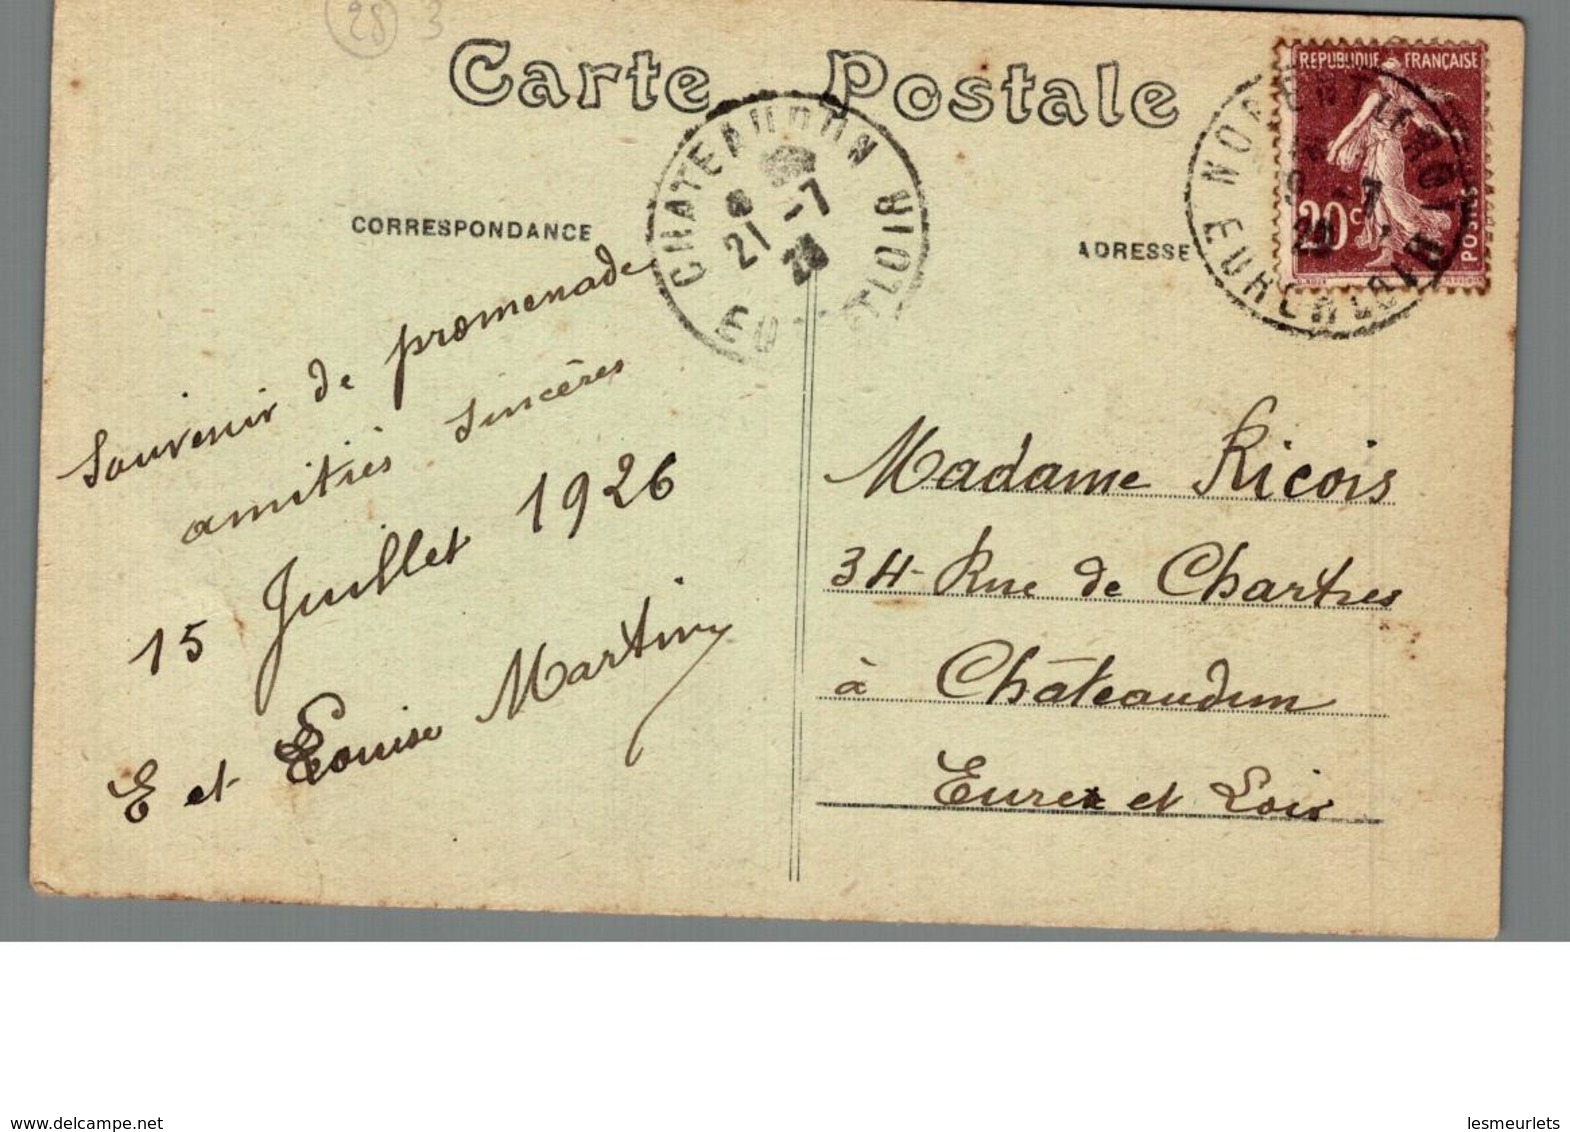 28 3
Carte Postale
REPUBLIQUE FRANÇAISE
20c
POSTES
CHATEAUDUN
21-7
26
LOIR
NO
EURE
LOIR
CORRESPONDANCE
ADRESSE
Souvenir de promenade
amitiés sincères
15 Juillet 1926
E et Louise Martin
Madame Ricois
34 Rue de Chartres
à Châteaudun
Eure et Loir
www.delcampe.net
lesmeurlets